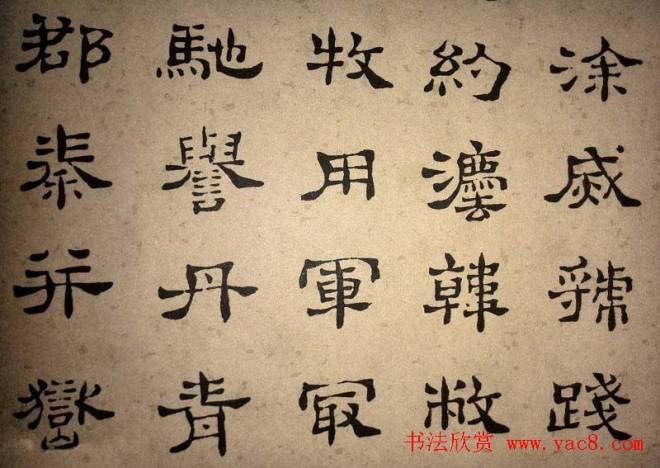 涂烕虢踐
約灋韓敝
牧用軍冣
馳譽丹青
郡秦并嶽
书法欣赏 www.yac8.com